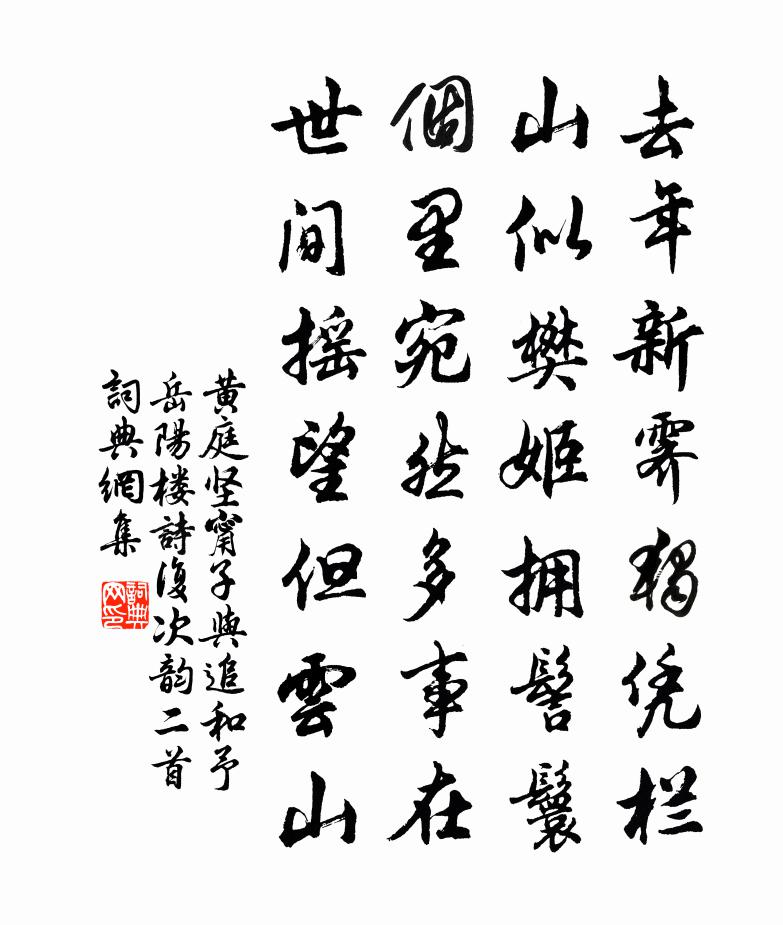 去年新霁獨凭栏
山似樊姬拥髻鬟
個里宛然多事在
世间摇望但雲山
黄庭坚甯子與追和予
岳陽楼詩復次韵二首
詞典網集
詞典网印